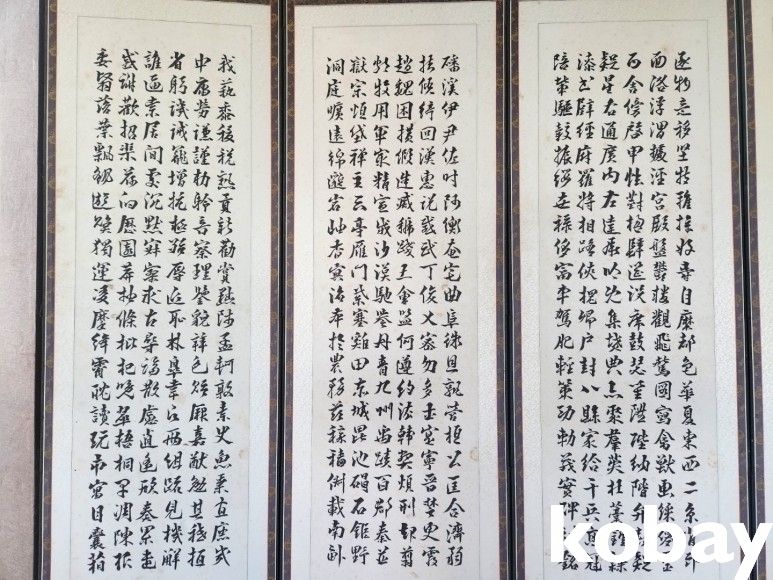 逐物意移堅持雅操好爵自縻都邑華夏東西二京背邙
面洛浮渭據涇宮殿盤鬱樓觀飛驚圖寫禽獸畫綵仙靈
丙舍傍啓甲帳對楹肆筵設席鼓瑟吹笙陞階納陛弁轉
疑星右通廣內左達承明既集墳典亦聚群英杜稾鍾隸
漆書壁經府羅將相路俠槐卿戶封八縣家給千兵高冠
陪輦驅轂振纓世祿侈富車駕肥輕策功茂實勒碑刻銘
磻溪伊尹佐時阿衡奄宅曲阜微旦孰營桓公匡合濟弱
扶傾綺回漢惠說感武丁俊乂密勿多士寔寧晉楚更霸
趙魏困橫假途滅虢踐土會盟何遵約法韓弊煩刑起翦
頗牧用軍最精宣威沙漠馳譽丹青九州禹跡百郡秦并
嶽宗恒岱禪主云亭雁門紫塞雞田赤城昆池碣石鉅野
洞庭曠遠綿邈巖岫杳冥治本於農務茲稼穡俶載南畝
我藝黍稷稅熟貢新勸賞黜陟孟軻敦素史魚秉直庶幾
中庸勞謙謹勅聆音察理鑑貌辨色貽厥嘉猷勉其祗植
省躬譏誡寵增抗極殆辱近恥林皋幸即兩疏見機解組
誰逼索居閒處沉默寂寥求古尋論散慮逍遙欣奏累遣
慼謝歡招渠荷的歷園莽抽條枇杷晚翠梧桐早凋陳根
委翳落葉飄颻遊鵾獨運凌摩絳霄耽讀翫市寓目囊箱
kobay